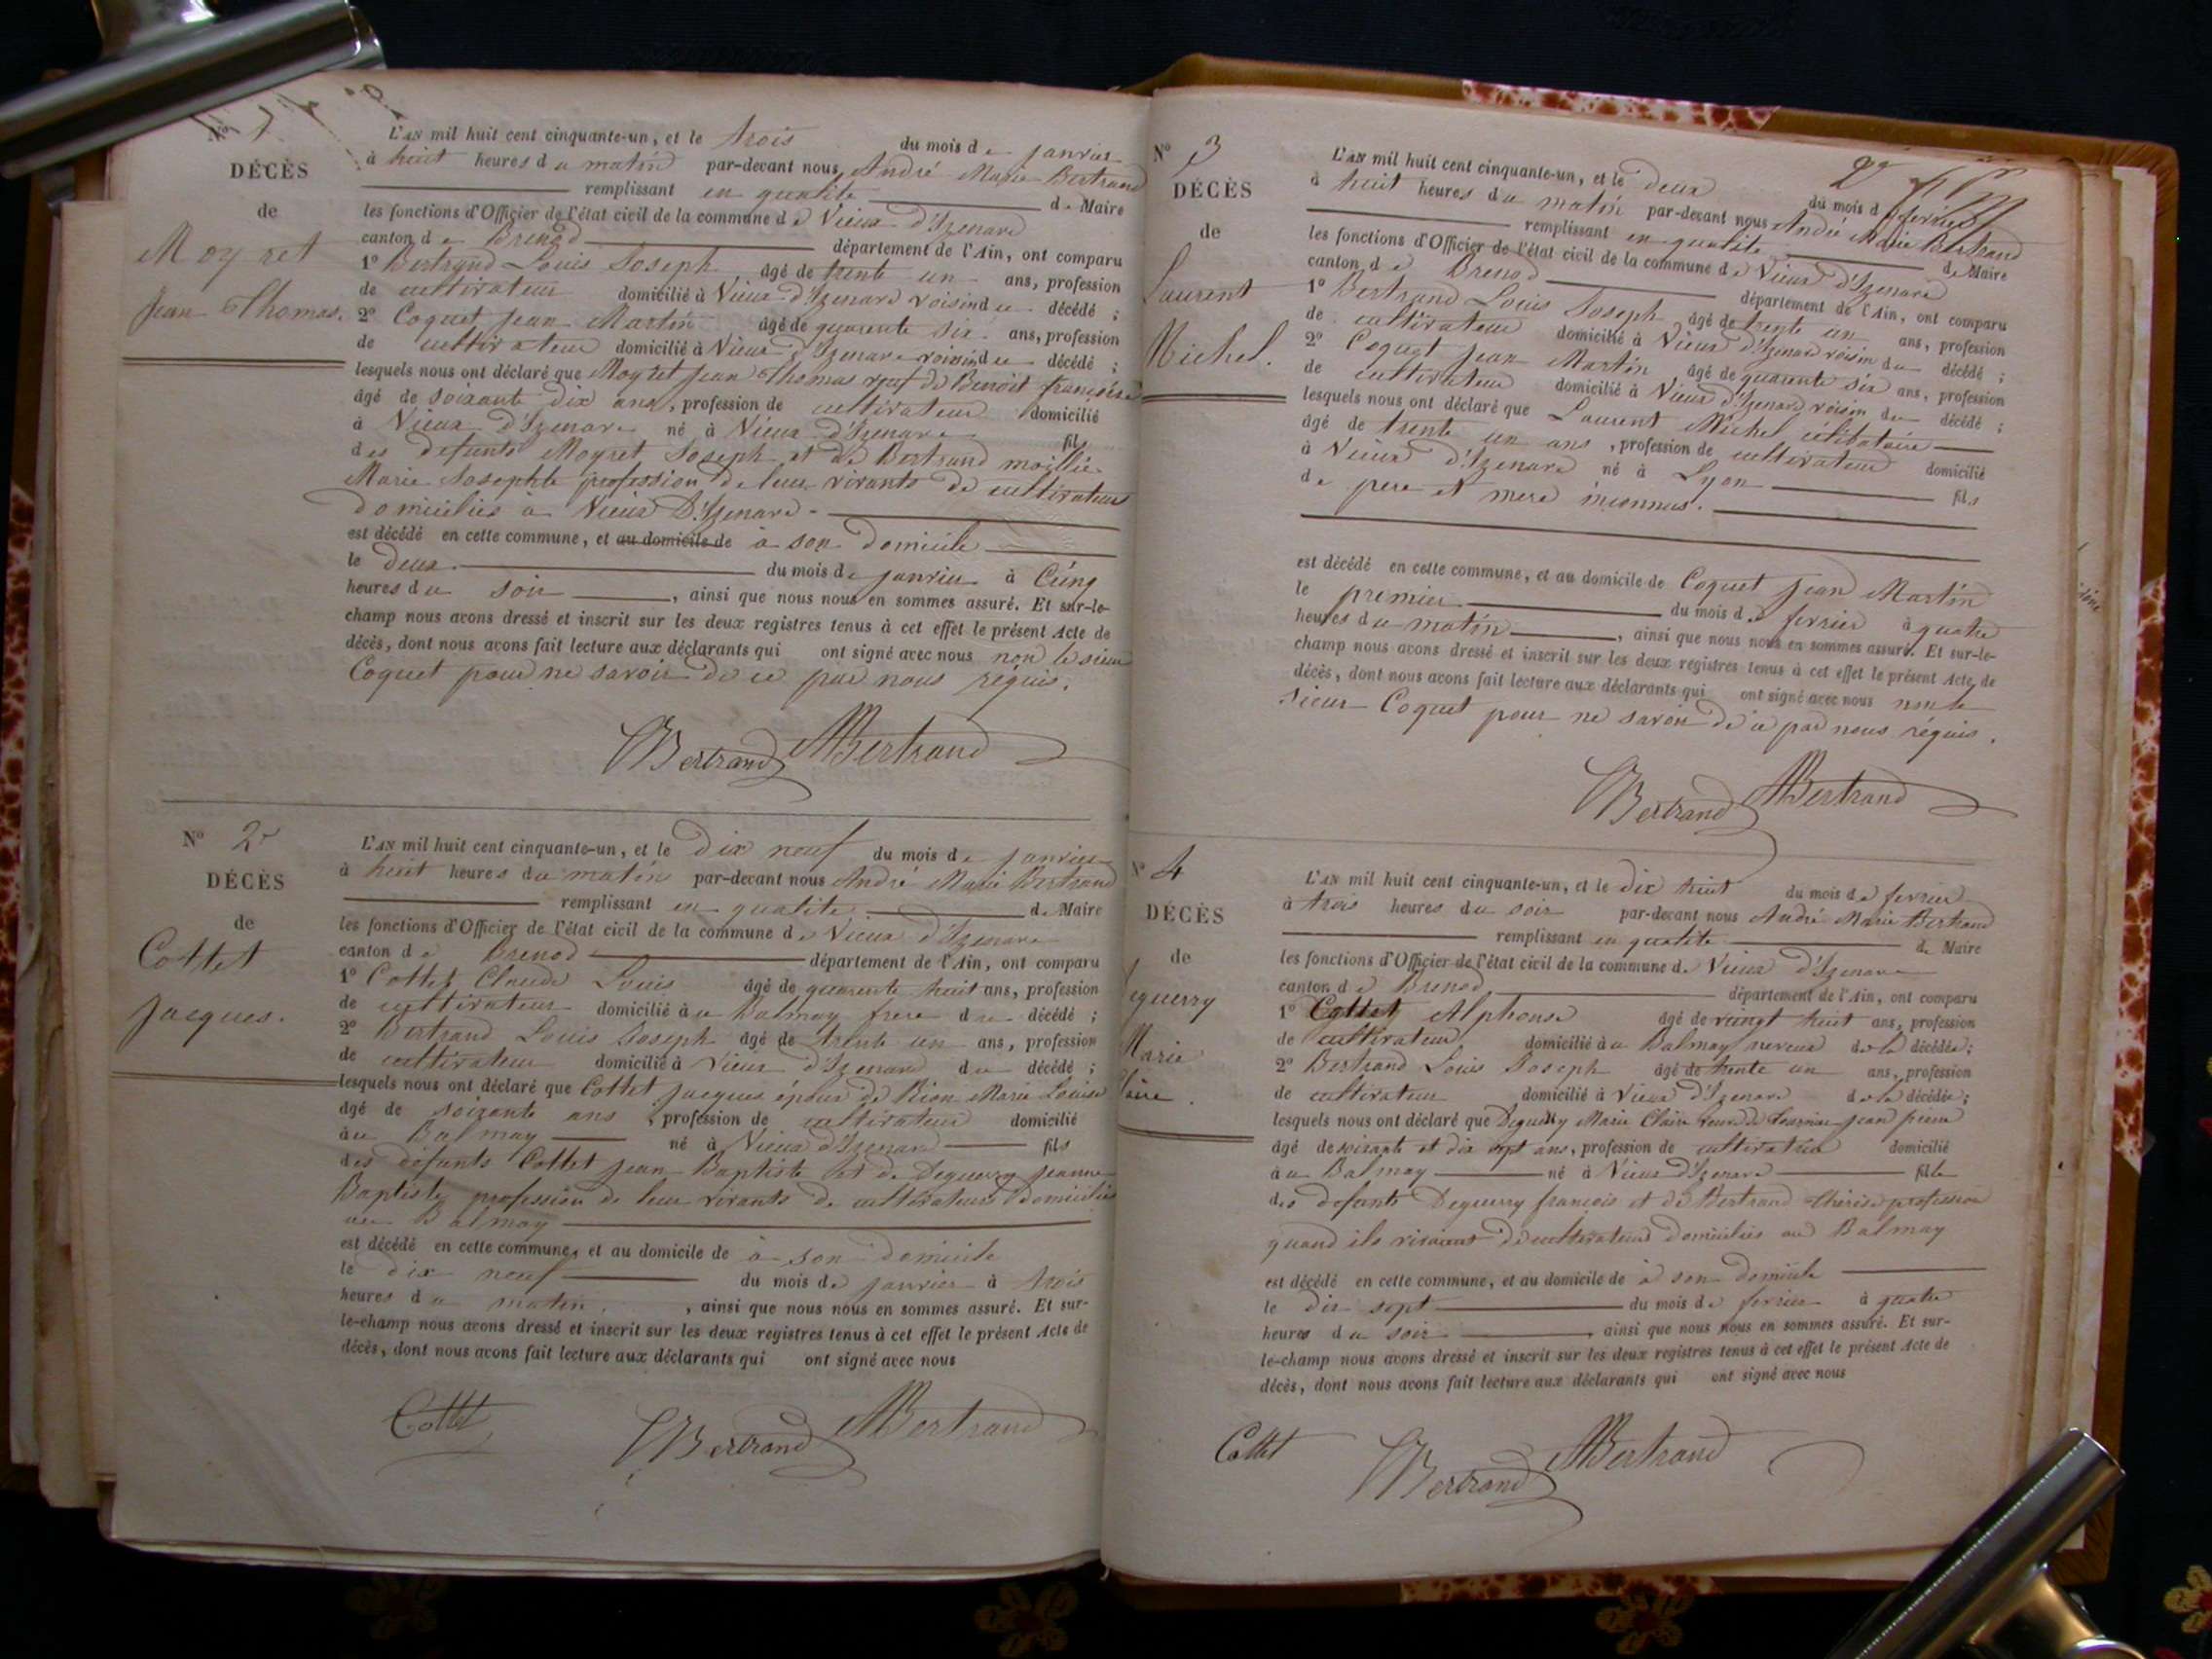 N° 1
DÉCÈS
de
Moyret
Jean Thomas.
L'AN mil huit cent cinquante-un, et le trois du mois de janvier
à huit heures du matin par-devant nous André Marie Bertrand
remplissant en qualité de Maire
les fonctions d'Officier de l'état civil de la commune de Vieux d'Izenave
canton de Brenod département de l'Ain, ont comparu
1° Bertrand Louis Joseph âgé de trente un ans, profession
de cultivateur domicilié à Vieux d'Izenave voisin du décédé ;
2° Coquet Jean Martin âgé de quarente six ans, profession
de cultivateur domicilié à Vieux d'Izenave voisin du décédé ;
lesquels nous ont déclaré que Moyret Jean Thomas veuf de Benoit françoise
âgé de soixante dix ans, profession de cultivateur domicilié
à Vieux d'Izenave né à Vieux d'Izenave fils
des defunts Moyret Joseph et de Bertrand moillie
Marie Josephte profession de leur vivants de cultivateurs
domiciliés à Vieux D'Izenave
est décédé en cette commune, et au domicile de à son domicile
le deux du mois de janvier à Cinq
heures du soir, ainsi que nous nous en sommes assuré. Et sur-le-
champ nous avons dressé et inscrit sur les deux registres tenus à cet effet le présent Acte de
décès, dont nous avons fait lecture aux déclarants qui ont signé avec nous non le sieur
Coquet pour ne savoir de ce par nous requis.
Bertrand ABertrand
N° 2
DÉCÈS
de
Cottet
Jacques.
L'AN mil huit cent cinquante-un, et le dix neuf du mois de janvier
à huit heures du matin par-devant nous André Marie Bertrand
remplissant en qualité de Maire
les fonctions d'Officier de l'état civil de la commune de Vieux d'Izenave
canton de Brenod département de l'Ain, ont comparu
1° Cottet Claude Louis âgé de quarente huit ans, profession
de cultivateur domicilié à u Balmay frere du décédé ;
2° Bertrand Louis Joseph âgé de trente un ans, profession
de cultivateur domicilié à Vieux d'Izenave du décédé ;
lesquels nous ont déclaré que Cottet Jacques époux de Rion Marie Louise
âgé de soixante ans, profession de cultivateur domicilié
àu Balmay né à Vieux d'Izenave fils
des défunts Cottet Jean Baptiste et de Deguerry Jeanne
Baptiste profession de leur vivants de cultivateurs domiciliés
au Balmay
est décédé en cette commune, et au domicile de à son domicile
le dix neuf du mois de janvier à trois
heures du matin, ainsi que nous nous en sommes assuré. Et sur-
le-champ nous avons dressé et inscrit sur les deux registres tenus à cet effet le présent Acte de
décès, dont nous avons fait lecture aux déclarants qui ont signé avec nous
Cottet Bertrand ABertrand
N° 3
DÉCÈS
de
Laurent
Michel.
L'AN mil huit cent cinquante-un, et le deux du mois de fevrier
à huit heures du matin par-devant nous André Marie Bertrand
remplissant en qualité de Maire
les fonctions d'Officier de l'état civil de la commune de Vieux d'Izenave
canton de Brenod département de l'Ain, ont comparu
1° Bertrand Louis Joseph âgé de trente un ans, profession
de cultivateur domicilié à Vieux d'Izenave voisin du décédé ;
2° Coquet Jean Martin âgé de quarente six ans, profession
de cultivateur domicilié à Vieux d'Izenave voisin du décédé ;
lesquels nous ont déclaré que Laurent Michel célibataire
âgé de trente un ans, profession de cultivateur domicilié
à Vieux d'Izenave né à Lyon fils
de pere et mere inconnus.
est décédé en cette commune, et au domicile de Coquet Jean Martin
le premier du mois de fevrier à quatre
heures du matin, ainsi que nous nous en sommes assuré. Et sur-le-
champ nous avons dressé et inscrit sur les deux registres tenus à cet effet le présent Acte de
décès, dont nous avons fait lecture aux déclarants qui ont signé avec nous non le
sieur Coquet pour ne savoir de ce par nous réquis.
Bertrand ABertrand
N° 4
DÉCÈS
de
eguerry
Marie
laire.
L'AN mil huit cent cinquante-un, et le dix huit du mois de fevrier
à trois heures du soir par-devant nous André Marie Bertrand
remplissant en qualité de Maire
les fonctions d'Officier de l'état civil de la commune de Vieux d'Izenave
canton de Brenod département de l'Ain, ont comparu
1° Cottet Alphonse âgé de vingt huit ans, profession
de cultivateur domicilié à u Balmay neveux de la décédée ;
2° Bertrand Louis Joseph âgé de trente un ans, profession
de cultivateur domicilié à Vieux d'Izenave de la décédée ;
lesquels nous ont déclaré que Deguerry Marie Claire veuve de Jean pierre
âgé de soixante et dix sept ans, profession de cultivatrice domicilié
à u Balmay né à Vieux d'Izenave fille
des defunts Deguerry francois et de Bertrand thérèse profession
quand ils vivaient de cultivateurs domiciliés au Balmay
est décédé en cette commune, et au domicile de à son domicile
le dix sept du mois de fevrier à quatre
heures du soir, ainsi que nous nous en sommes assuré. Et sur-
le-champ nous avons dressé et inscrit sur les deux registres tenus à cet effet le présent Acte de
décès, dont nous avons fait lecture aux déclarants qui ont signé avec nous
Cottet Bertrand ABertrand